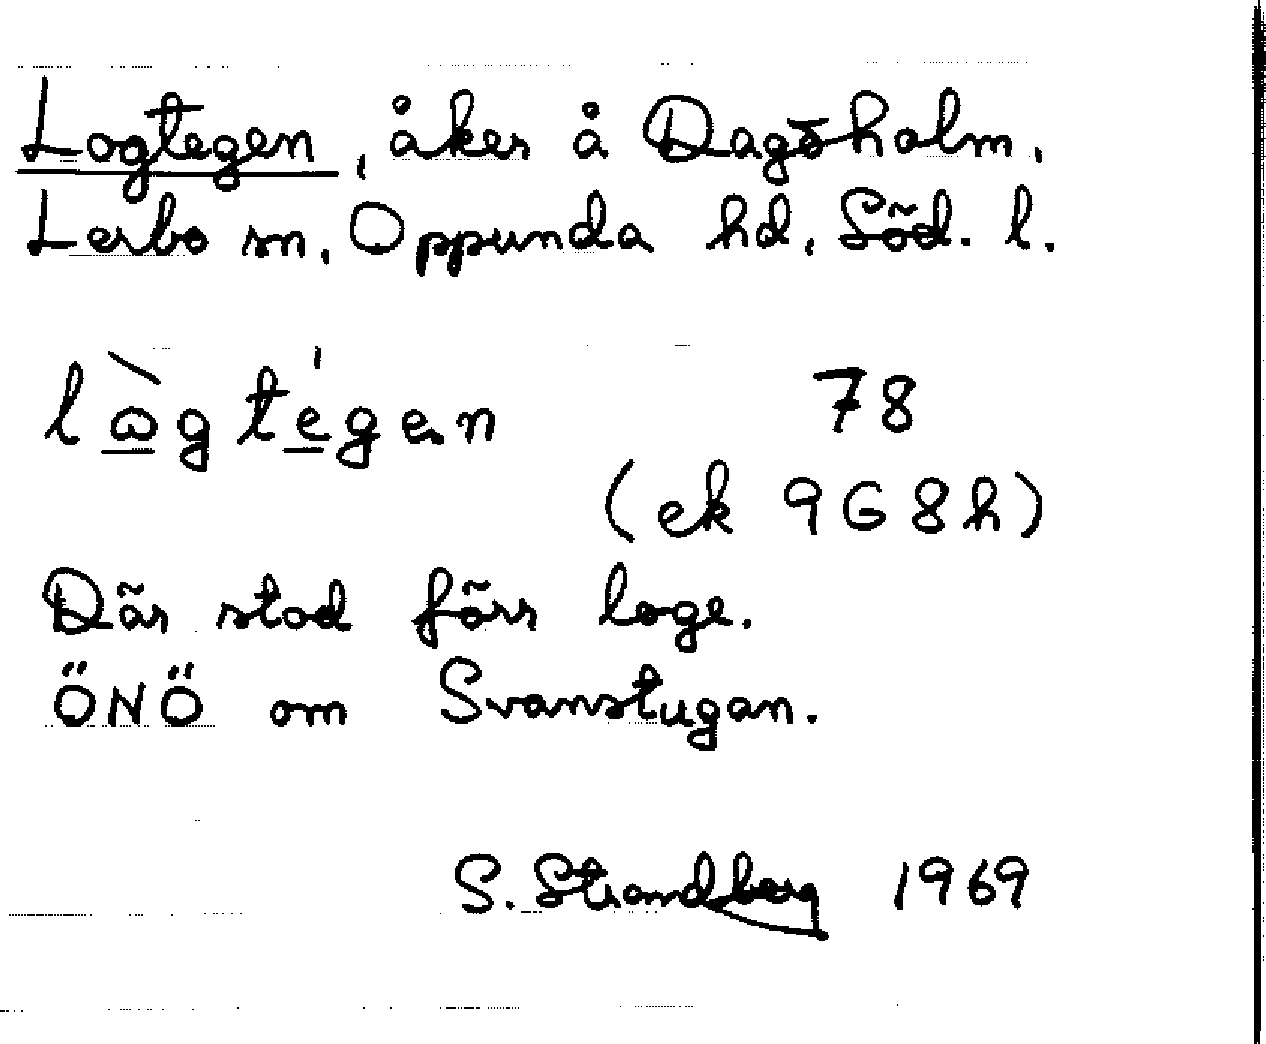 Logtegen, åker å Dagöholm,
Lerbo sn, Oppunda hd, Söd. l.
lògtégen 78
(ek 9G8h)
Där stod förr loge.
ÖNÖ om Svanstugan.
S. Strandberg 1969